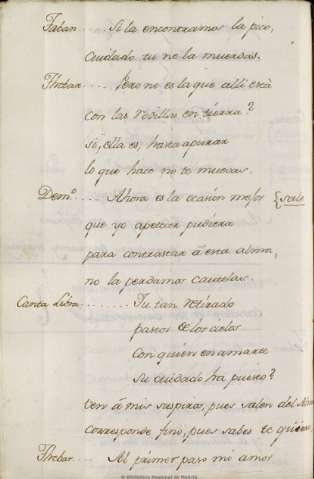 Faban... Si la encontramos la pico,
cuidado tu no la muerdas.
Threbar... Pero no es la que alli está
con las rodillas en tierra?
si, ella es, hasta apurar
lo que hace no te muevas.
Demo... Ahora es la ocasion mejor {sale
que yo apetecer pudiera
para contrastar á esta alma,
no la perdamos cautelas.
Canta Libia... Tu tan retirado
pastor de los cielos
con quien en amarte
su cuidado ha puesto?
ven á mis suspiros, pues salen del
corresponde fino, pues sabes te quiero
Threbar... Al primer paso mi amor
Biblioteca Nacional de España